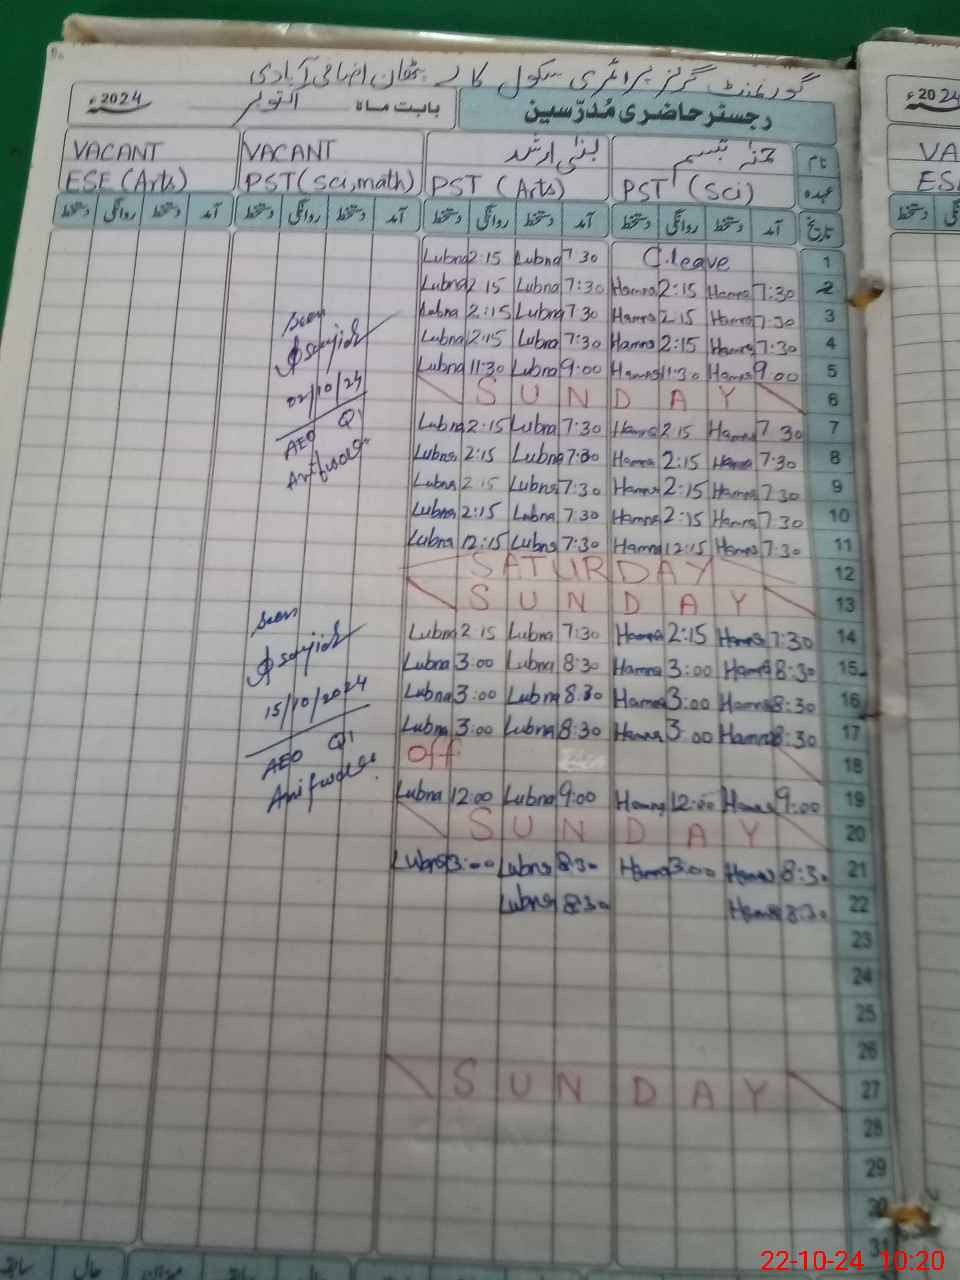 گورنمنٹ گرلز پرائمری سکول کالے پٹھان اضافی آبادی
رجسٹر حاضری مُدرّسین
بابت ماہ اکتوبر 2024ء
نام حنہ تبسم لبنیٰ ارشد VACANT VACANT
عہدہ PST (Sci) PST (Arts) PST (Sci,math) ESE (Arts)
تاریخ آمد دستخط روانگی دستخط آمد دستخط روانگی دستخط آمد دستخط روانگی دستخط آمد دستخط روانگی دستخط
Lubna 2:15 Lubna 7:30 C.leave 1
Lubna 2:15 Lubna 7:30 Hamna 2:15 Hamna 7:30 2
Lubna 2:15 Lubna 7:30 Hamna 2:15 Hamna 7:30 3
Lubna 2:15 Lubna 7:30 Hamna 2:15 Hamna 7:30 4
Lubna 11:30 Lubna 9:00 Hamna 11:30 Hamna 9:00 5
SUNDAY 6
Lubna 2:15 Lubna 7:30 Hamna 2:15 Hamna 7:30 7
Lubna 2:15 Lubna 7:30 Hamna 2:15 Hamna 7:30 8
Lubna 2:15 Lubna 7:30 Hamna 2:15 Hamna 7:30 9
Lubna 2:15 Lubna 7:30 Hamna 2:15 Hamna 7:30 10
Lubna 12:15 Lubna 7:30 Hamna 12:15 Hamna 7:30 11
SATURDAY 12
SUNDAY 13
Lubna 2:15 Lubna 7:30 Hamna 2:15 Hamna 7:30 14
Lubna 3:00 Lubna 8:30 Hamna 3:00 Hamna 8:30 15
Lubna 3:00 Lubna 8:30 Hamna 3:00 Hamna 8:30 16
Lubna 3:00 Lubna 8:30 Hamna 3:00 Hamna 8:30 17
Off 18
Lubna 12:00 Lubna 9:00 Hamna 12:00 Hamna 9:00 19
SUNDAY 20
Lubna 3:00 Lubna 8:30 Hamna 3:00 Hamna 8:30 21
Lubna 8:30 Hamna 8:30 22
23
24
25
26
SUNDAY 27
28
29
30
31
Seen
02/10/24
AEO
Seen
15/10/2024
AEO
2024ء
VA
ESE
22-10-24 10:20